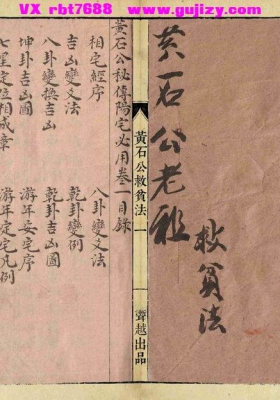 VX rbt7688 www.gujizy.com
黃石公老祖
救貧法
黃石公救貧法 一
聲越出品
黃石公秘傳陽宅必用卷一目錄
相宅經序
八卦變爻法
吉凶變爻法
乾卦變例
八卦變換吉凶
乾卦吉凶圖
坤卦吉凶圖
游年安宅序
七星定位相成章
游年定宅凡例